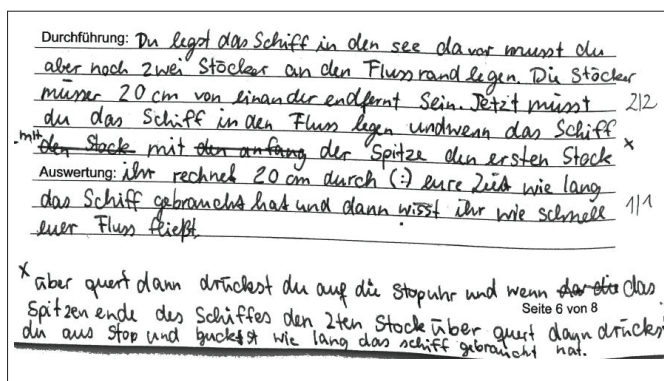 Durchführung: Du legst das Schiff in den see davor musst du
aber noch zwei Stöcker an den Flussrand legen. Die Stöcker
müsser 20 cm von einander endfernt Sein. Jetzt müsst 2|2
du das Schiff in den Fluss legen undwenn das Schiff
mit den Stock mit den anfang der Spitze den ersten Stock x
Auswertung: ihr rechnet 20 cm durch (:) eure Zeit wie lang
das Schiff gebraucht hat und dann wisst ihr wie schnell 1|1
euer Fluss fließt.
x über quert dann drückst du auf die Stopuhr und wenn das
Seite 6 von 8
Spitzen ende des Schiffes den 2ten Stock über quert dann drückst
du aus Stop und guckst wie lang das schiff gebraucht hat.